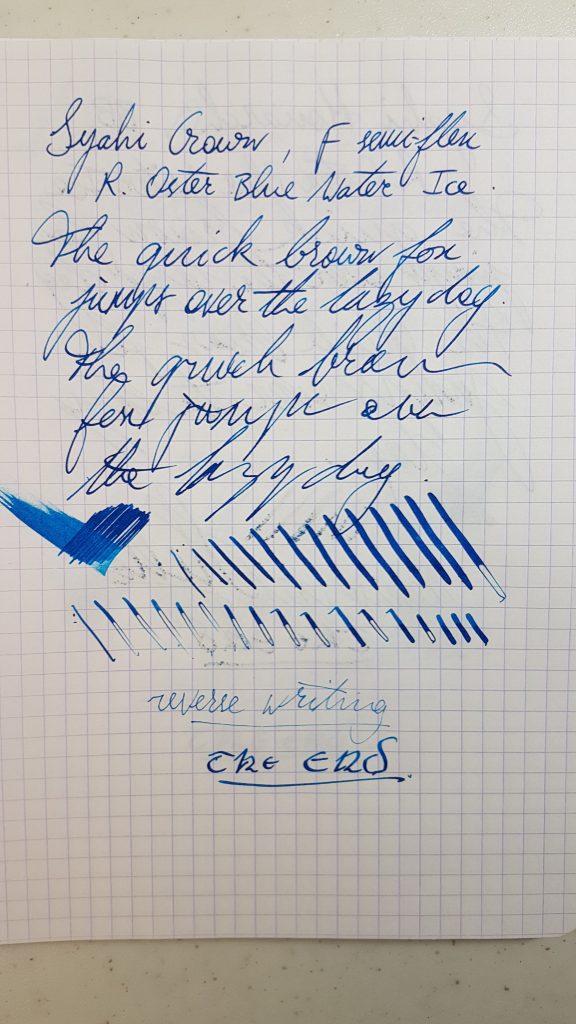 Syahi Crown, F semi-flex
R. Oster Blue Water Ice.
The quick brown fox
jumps over the lazy dog.
The quick brown
fox jumps over
the lazy dog.
reverse writing
The End.